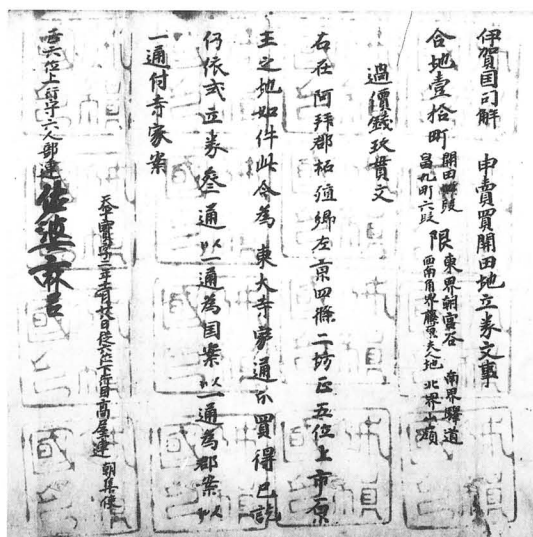 伊賀国司解 申賣買開田地立券文事
合地壹拾町 開田肆段 畠九町六段 限 東界朝宮谷 南界驛道 西南角界藤原夫人地 北界山頭
過價錢玖貫文
右在阿拝郡柘殖郷左京四條二坊正五位上市原
王之地如件此今為東大寺 通 買得已訖
仍依式立券叄通以一通為国案以一通為郡案以
一通付寺家案
天平寶字二年 月 日従六位下行目高屋連 朝集使
六位上行守六人部連佐婆麻呂